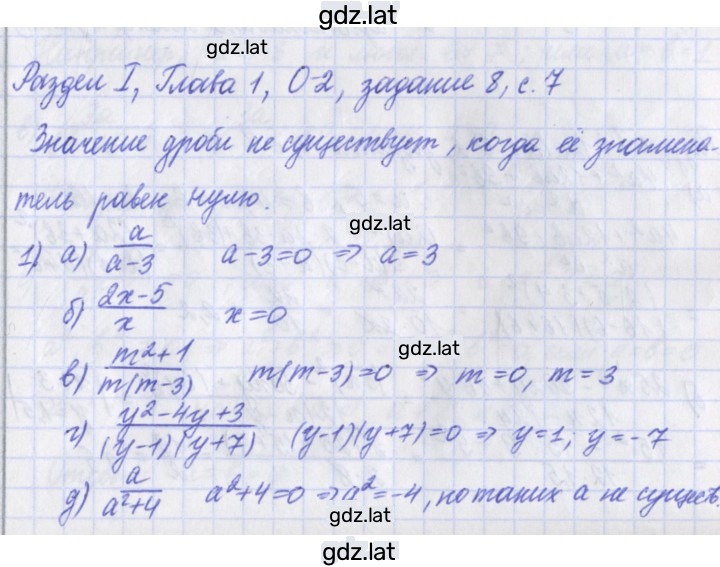 gdz.lat
gdz.lat
Раздел I, Глава 1, О-2, задание 8, с. 7
Значение дроби не существует, когда её знамена-
тель равен нулю.
gdz.lat
1) а) a/(a-3) a-3=0 ⇒ a=3
б) (2x-5)/x x=0
gdz.lat
в) (m²+1)/(m(m-3)) m(m-3)=0 ⇒ m=0, m=3
г) (y²-4y+3)/((y-1)(y+7)) (y-1)(y+7)=0 ⇒ y=1; y=-7
д) a/(a²+4) a²+4=0 ⇒ a²=-4, но таких a не существ.
gdz.lat
gdz.lat